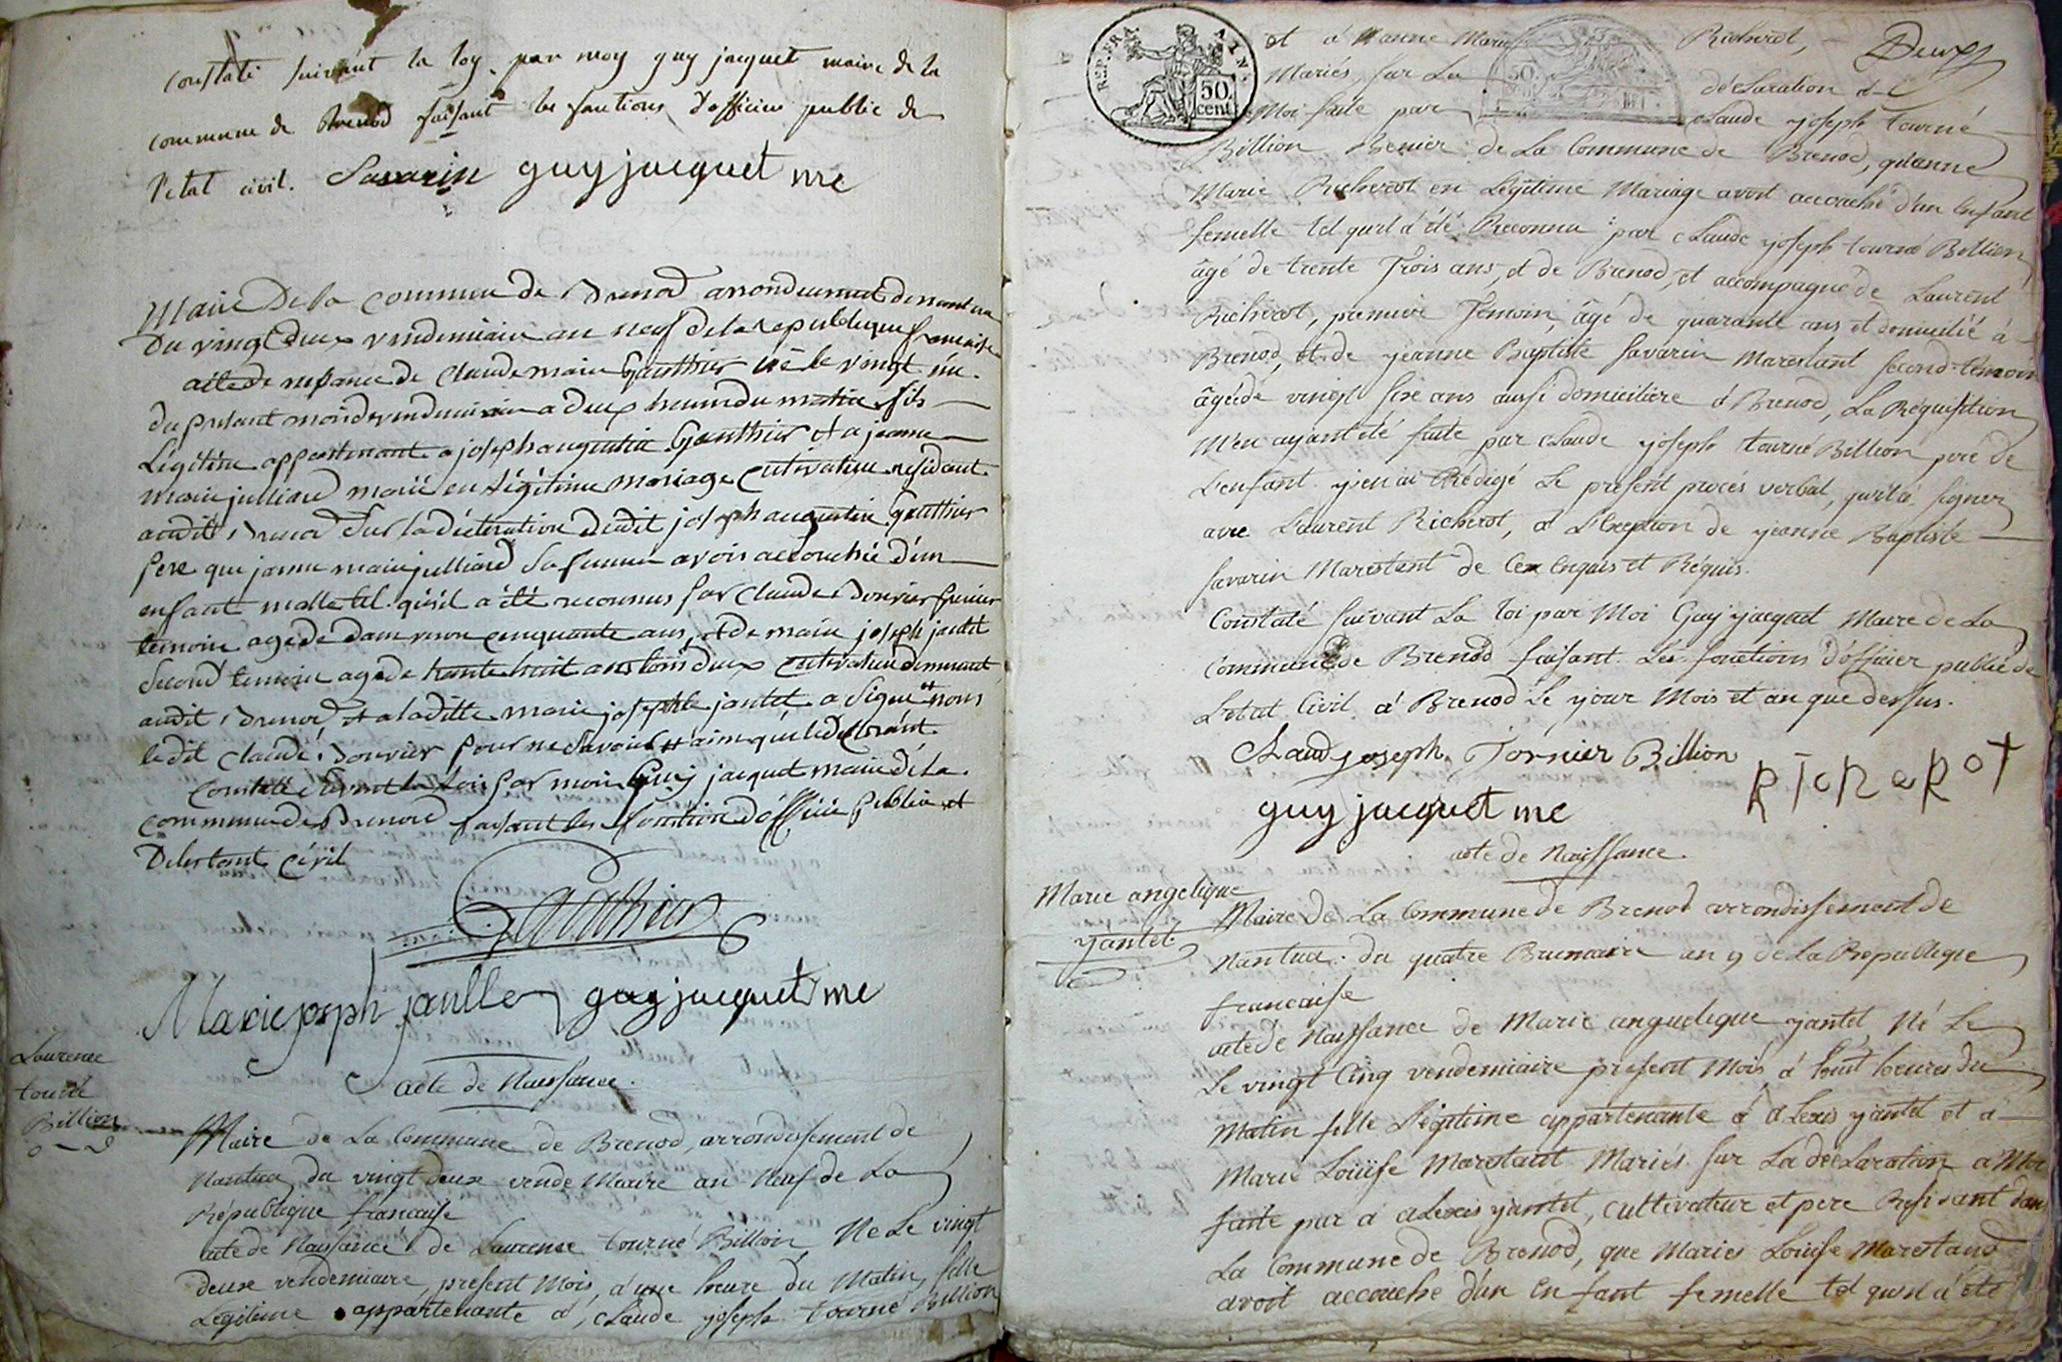 constaté suivant la loy par moy guy jacquet maire de la
commune de Brenod faisant les fonctions d'officier public de
l'etat civil. Savarin guy jacquet me
Maire De la commune de Brenod arrondissement de nantua
Du vingt deux vendemiaire an neuf de la republique francaise
acte de naissance de Claude marie Gauthier né le vingt un
du present mois de vendemiaire a deux heures du matin fils
Légitime appartenant a joseph augustin Gauthier et a jeanne
marie julliard marié en légitime mariage Cultivateur residant
audit Brenod Sur la déclaration dudit joseph augustin Gauthier
pere que jeanne marie julliard sa femme avoir accouchée d'un
enfant malle tel qu'il a été reconnus par Claude Bouvier premier
temoin agé de cinquante ans, et de marie joseph jantet
Second temoin agé de trente huit ans tous deux Cultivateur demeurant
audit Brenod, et a laditte marie josephte jantet a Signé et nons
ledit Claude Bouvier pour ne Savoir
Constaté Suivant la Loi par moi Guy jacquet maire de la
commune de Brenod faisant les fonction d'officier publique
De letant Cévil
Gauthier
Marie joseph jantte guy jacquet me
acte de Naissance.
Laurence
tourné
Billion
Maire de La Commune de Brenod, arrondissement de
Nantua du vingt deux vende Maire an Neuf de La
République francaise
acte de Naissance de Laurence tourné Billion, Né Le vingt
deux vendemiaire, present Mois, a une heure du Matin, fille
Légitime appartenante à Claude yoseph tourné Billion
REP. FRA. 50 cent
Deux
et à Manne Marie Richerot,
Mariés, sur La déclaration à
Moi faite par Claude yoseph tourné
Billion Renier de La Commune de Brenod, qu'anne
Marie Richerot en Légitime Mariage avoit accouché d'un Enfant
femelle tel quil a été Reconnu par Claude yoseph tourné Billion,
âgé de trente trois ans, et de Brenod, et accompagné de Laurent
Richerot, premier temoin, âgé de quarante ans et domicilié à
Brenod, et de yeanne Baptiste Savarin Marestant second temoin
âgé de vingt sixe ans aussi domiciliere à Brenod, La Réquisition
M'en ayant été faite par Claude yoseph tourné Billion père de
L'enfant. yen ai Rédigé Le present procés verbal, quila signer
avec Laurent Richerot, à L'Exeption de yeanne Baptiste
Savarin Marestant de Ce Enquis et Réquis.
Constaté suivant La Loi par Moi Guy yacquet Maire de La
Commune de Brenod faisant Les fonctions d'officier public de
L'etat Civil à Brenod Le your Mois et an que dessus.
Claud joseph Tornier Billion
RICHEROT
guy jacquet me
acte de Naissance.
Marie angelique
yantet
Maire de La Commune de Brenod arrondissement de
Nantua. du quatre Brumaire an 9 de La Republique
francaise
acte de Naissance de Marie anguelique yantet Né Le
Le vingt Cinq vendemiaire present Mois à huit heures du
Matin fille Légitime appartenante à aLexis yantet et à
Marie Louise Marestant Mariés. sur La décLaration à Moi
faite par à aLexis yantet, Cultivateur et pere Residant dan
La Commune de Brenod, que Maries Louise Marestand
avoit accouche d'un Enfant femelle tel quil à été